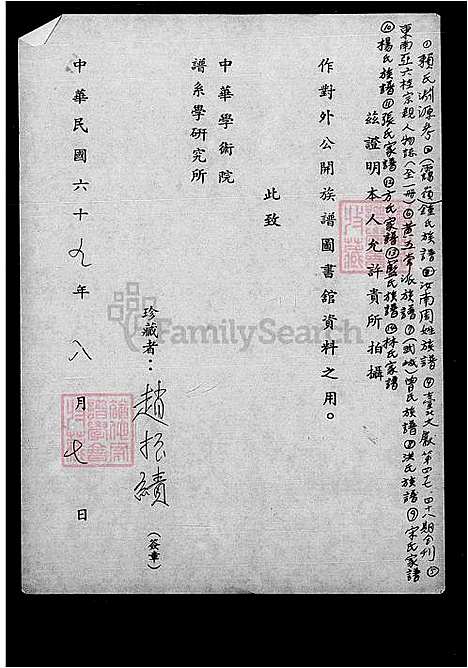 ①賴氏淵源考②(霄蘋)鍾氏族譜③汝南周姓族譜④臺北文獻第四七、四十八期合刊⑤
東南亞六桂宗親人物誌(全一冊)⑥黃五常派族譜⑦(武城)曾氏族譜⑧洪氏族譜⑨宋氏家譜
⑩楊氏族譜⑪張氏家譜⑫方氏家譜⑬藍氏族譜⑭林氏家譜
茲證明本人允許貴所拍攝
作對外公開族譜圖書館資料之用。
此致
中華學術院
譜系學研究所
珍藏者：趙振績(簽章)
中華民國六十九年八月七日
FamilySearch